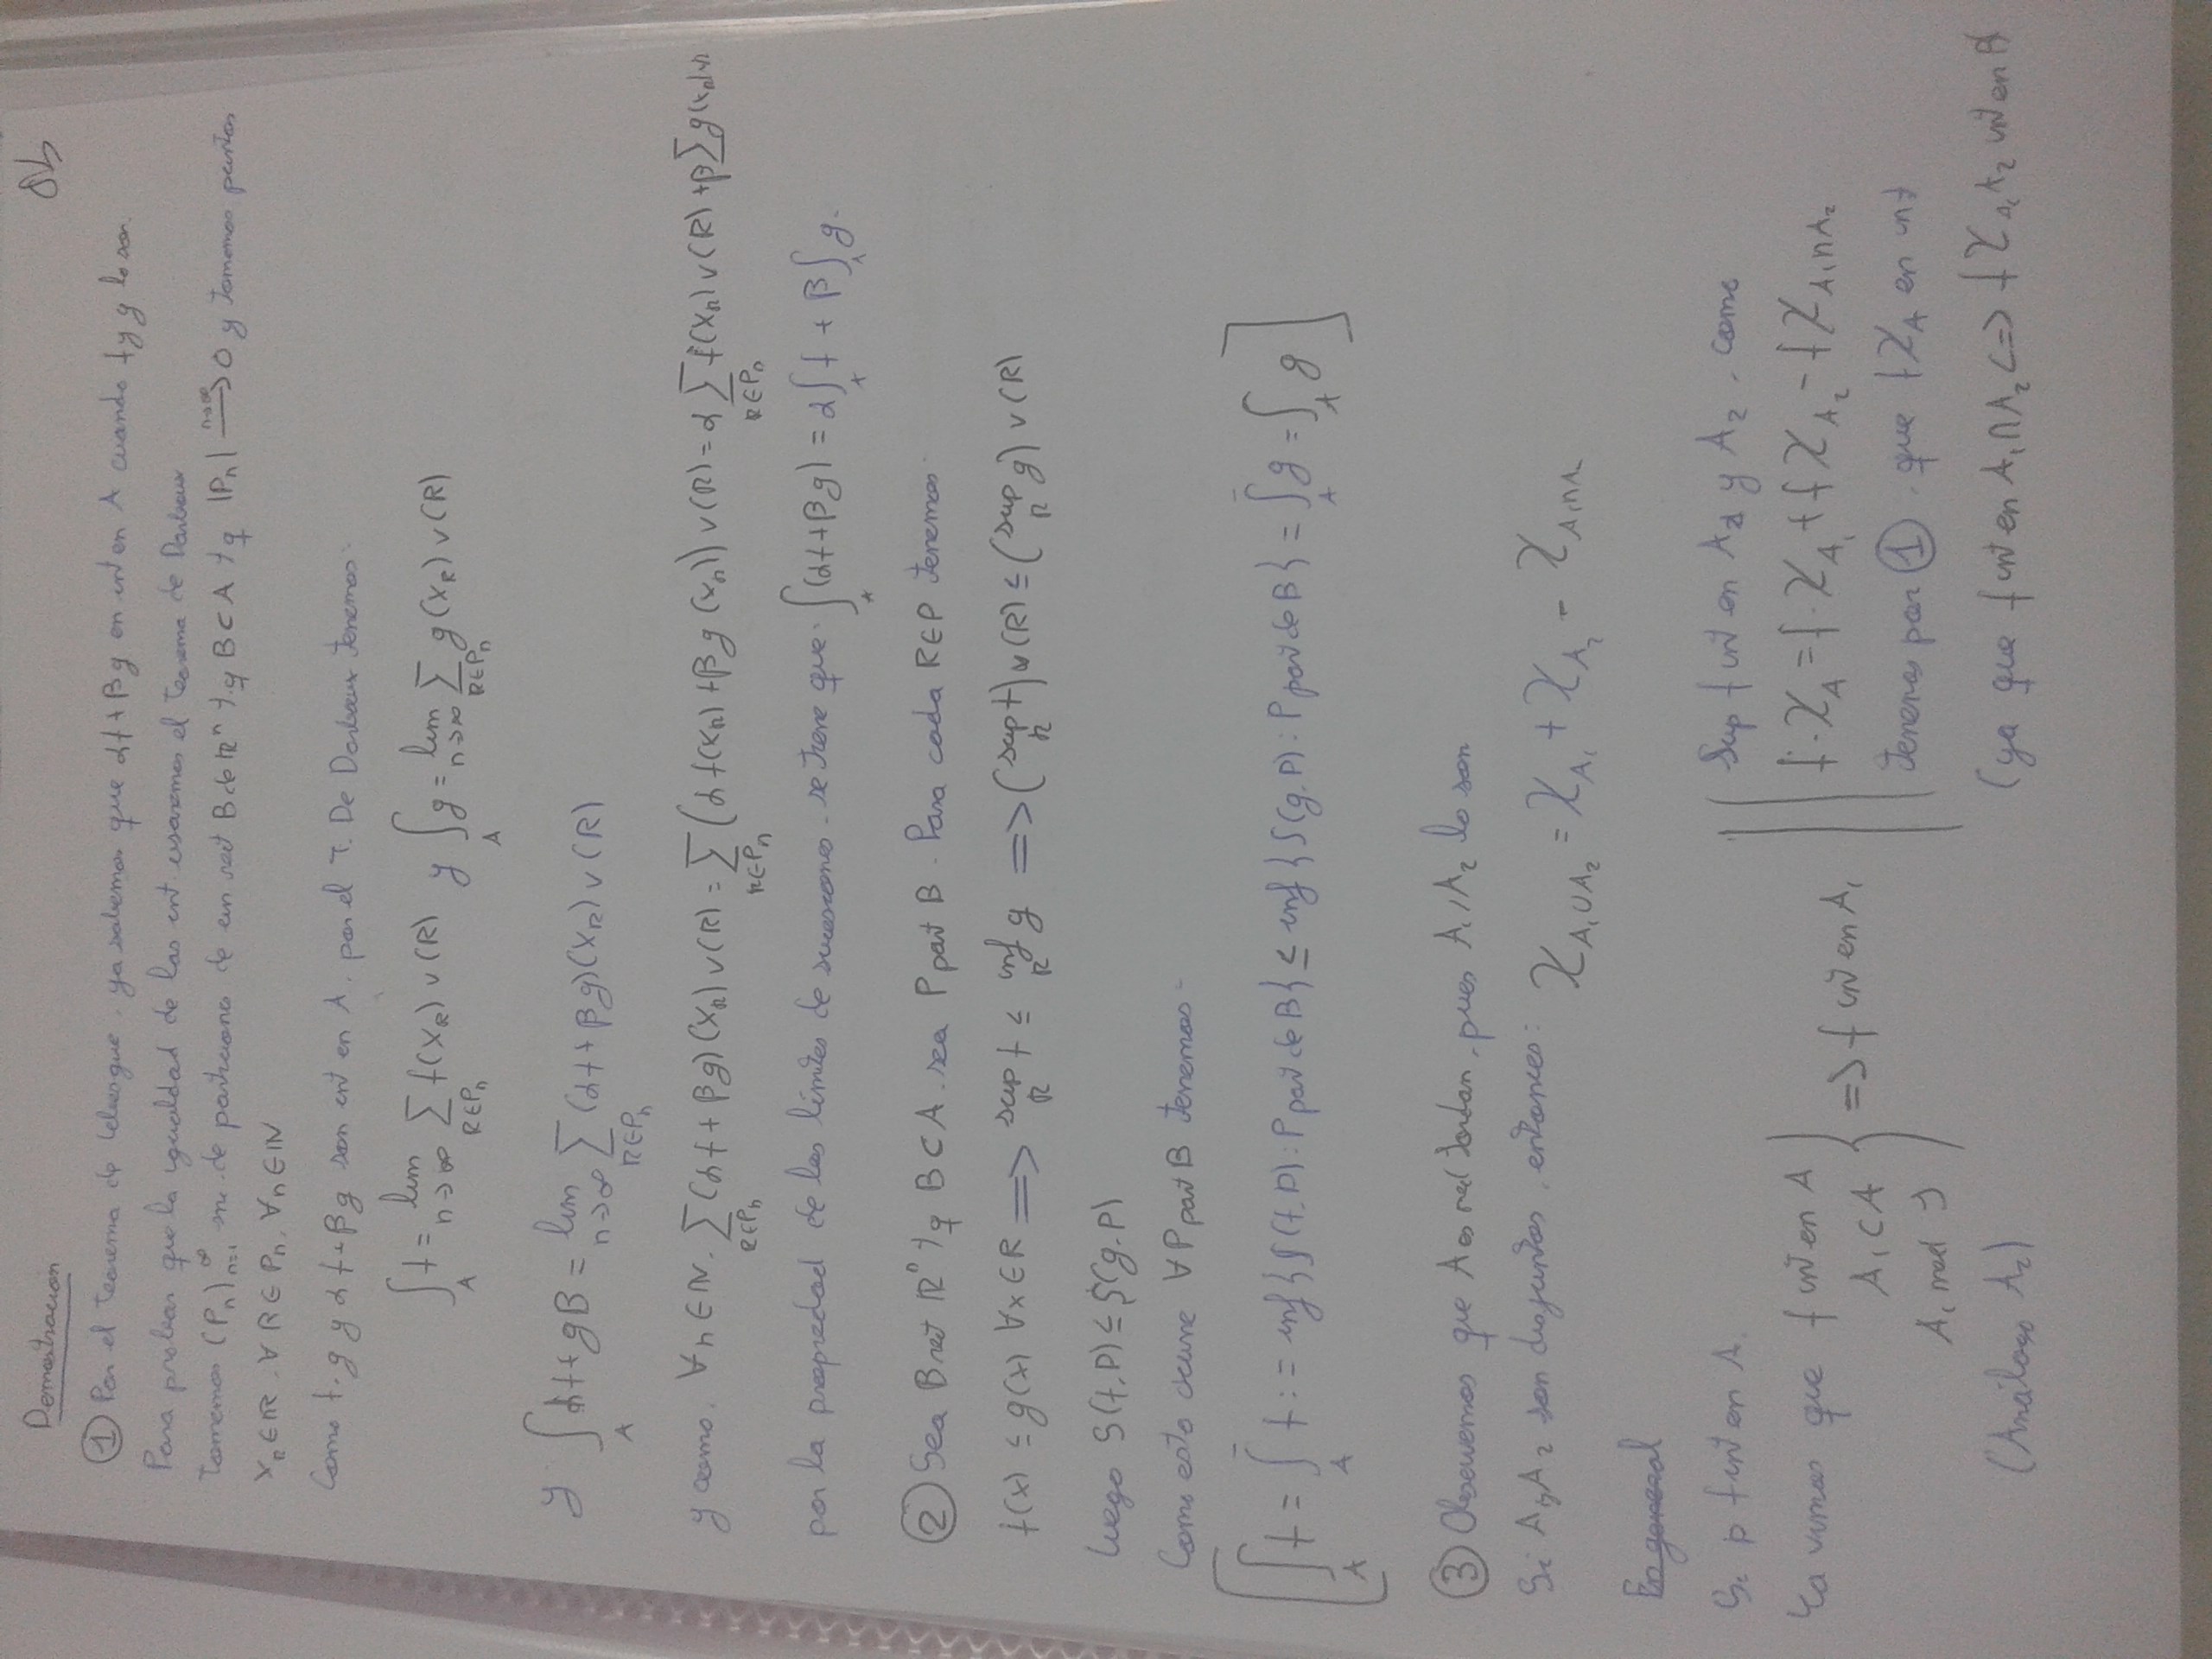 86
Demostracion
① Por el teorema de lebesgue, ya sabemos que αf+βg en int en A cuando f y g lo son.
Para probar que la igualdad de las int usaremos el teorema de Darboux
tomemos (Pn)∞n=1 suc. de particiones de un rect B de ℝⁿ t.q B⊂A tq |Pn| n→∞⟶ 0 y tomemos puntos
x_R ∈ R, ∀R∈Pn, ∀n∈ℕ
Como f, g y αf+βg son int en A, por el T. De Darboux tenemos.
∫_A f = lim_{n→∞} Σ_{R∈Pn} f(x_R) v(R) y ∫_A g = lim_{n→∞} Σ_{R∈Pn} g(x_R) v(R)
y ∫_A αf+gB = lim_{n→∞} Σ_{R∈Pn} (αf+βg)(x_R) v(R)
y como, ∀n∈ℕ, Σ_{R∈Pn} (αf+βg)(x_R) v(R) = Σ_{R∈Pn} (αf(x_R)+βg(x_R)) v(R) = α Σ_{R∈Pn} f(x_R) v(R) + β Σ g(x_R)v
por la propiedad de los límites de sucesiones, se tiene que. ∫_A (αf+βg) = α∫_A f + β∫_A g.
② Sea B rect ℝⁿ t.q B⊂A. sea P part B. Para cada R∈P tenemos.
f(x) ≤ g(x) ∀x∈R ⟹ sup_R f ≤ inf_R g ⟹ (sup_R f) v(R) ≤ (sup_R g) v(R)
luego S(f,P) ≤ S(g,P)
Como esto ocurre ∀P part B tenemos.
[∫_A f = ∫̄_A f := inf{S(f,P): P part de B} ≤ inf{S(g,P): P part de B} = ∫̄_A g = ∫_A g]
③ Observemos que A es med Jordan, pues A₁, A₂ lo son
Si A₁, A₂ son disjuntos, entonces: χ_{A₁∪A₂} = χ_{A₁} + χ_{A₂} - χ_{A₁∩A}
En general
Si f int en A.
Ya vimos que f int en A
A₁⊂A
A₁ med J
} ⟹ f int en A₁
(Análogo A₂)
Sup f int en A₁ y A₂. como
f·χ_A = f·χ_{A₁} + fχ_{A₂} - fχ_{A₁∩A₂}
tenemos por ①, que fχ_A en int
(ya que f int en A₁∩A₂ ⟺ fχ_{A₁A₂} int en A)